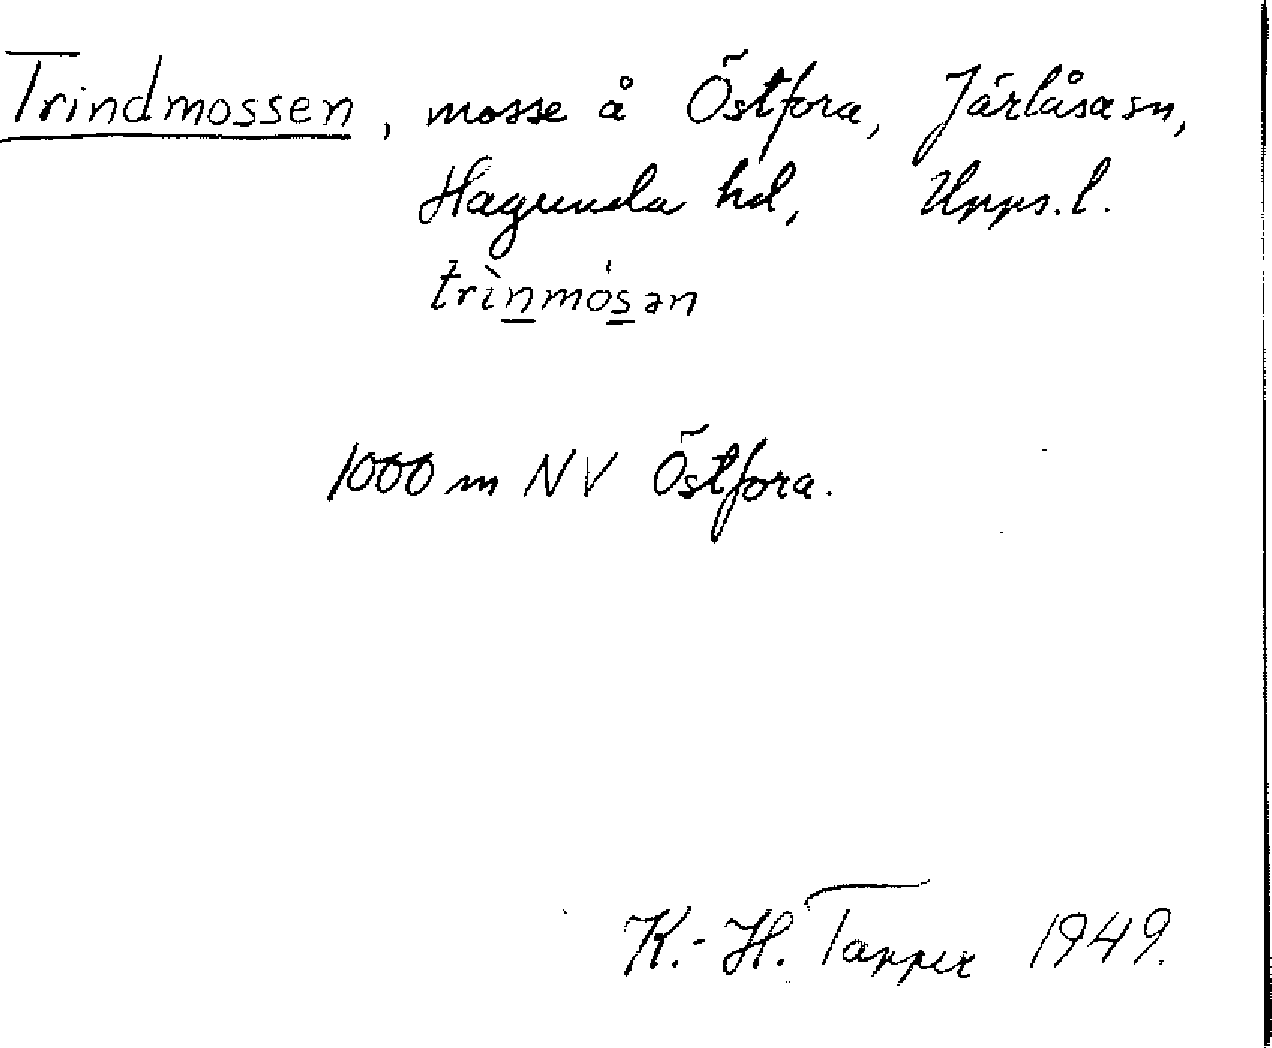 Trindmossen, mosse å Östfora, Järlåsa sn,
Hagunda hd, Upps. l.
trìnmósən
1000 m NV Östfora.
K.-H. Tapper 1949.